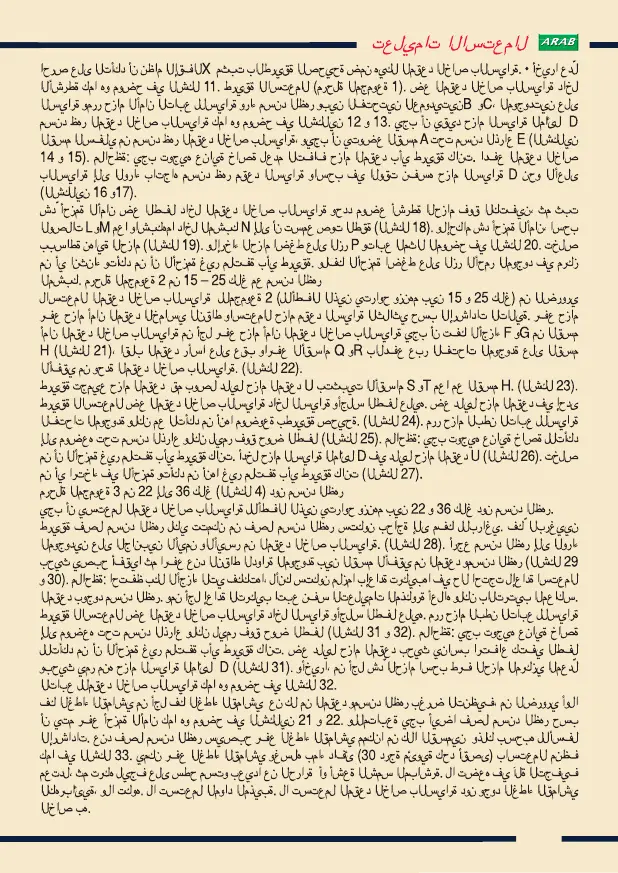 تعليمات الاستعمال ARAB
احرص على التأكد أن نظام الإقفالX مثبت بالطريقة الصحيحة ضمن هيكل المقعد الخاص بالسيارة. • أخيرا عدّل
الأشرطة كما هو موضح في الشكل 11. طريقة الاستعمال (مرحلة المجموعة 1). ضع المقعد الخاص بالسيارة داخل
السيارة ومرر حزام الأمان التابع للسيارة وراء مسند الظهر وبين الفتحتين العموديتينB وC، الموجودتين على
مسند ظهر المقعد الخاص بالسيارة كما هو موضح في الشكلين 12 و 13. يجب أن يقيد حزام السيارة المائل D
القسم السفلي من مسند ظهر المقعد الخاص بالسيارة، ويجب أن يتوضع القسم A تحت مسند الذراع E (الشكلين
14 و 15). ملاحظة: يجب توجيه عناية خاصة لعدم التفاف حزام المقعد بأي طريقة كانت. ادفع المقعد الخاص
بالسيارة إلى الوراء باتجاه مسند ظهر مقعد السيارة واسحب في الوقت نفسه حزام السيارة D نحو الأعلى
(الشكلين 16 و17).
شدّ أحزمة الأمان ضع الطفل داخل المقعد الخاص بالسيارة وحدد موضع أشرطة الحزام فوق الكتفين، ثم ثبت
الوصلات L وM معا واشبكهما داخل المشبك N إلى أن تسمع صوت الطقة (الشكل 18). ولإحكام شد أحزمة الأمان، اسحب
ببساطة نهاية الحزام (الشكل 19). ولإرخاء الحزام اضغط على الزر P وتابع المثال الموضح في الشكل 20. تخلص
من أي انثناء وتأكد من أن الأحزمة غير ملتفة بأي طريقة. ولفك الأحزمة اضغط على الزر الأحمر الموجود في مركز
المشبك. مرحلة المجموعة 2 من 15 – 25 كلغ مع مسند الظهر
لاستعمال المقعد الخاص بالسيارة للمجموعة 2 (للأطفال الذين يتراوح وزنهم بين 15 و 25 كلغ) من الضروري
رفع حزام أمان المقعد الخماسي النقاط واستعمال حزام مقعد السيارة الثلاثي حسب الإرشادات التالية. رفع حزام
أمان المقعد الخاص بالسيارة من أجل رفع حزام أمان المقعد الخاص بالسيارة يجب أن تفك الأجزاء F وG من القسم
H (الشكل 21)، اقلب المقعد رأسا على عقب وارفع الأقسام Q وR بالدفع عبر الفتحات الموجودة على القسم
الأفقي من وحدة المقعد الخاص بالسيارة. (الشكل 22).
طريقة تجميع حزام المقعد قم بوصل دليل حزام المقعد U بتثبيت الأقسام S وT معا مع القسم H. (الشكل 23).
طريقة الاستعمال ضع المقعد الخاص بالسيارة داخل السيارة وأجلس الطفل عليه. ضع دليل حزام المقعد في إحدى
الفتحات الموجودة ولكن مع التأكد من أنها موضوعة بطريقة صحيحة. (الشكل 24). مرر حزام البطن التابع للسيارة
إلى موضعه تحت مسند الذراع ولكن ليمر فوق حوض الطفل (الشكل 25). ملاحظة: يجب توجيه عناية خاصة للتأكد
من أن الأحزمة غير ملتفة بأي طريقة كانت. أدخل حزام السيارة المائل D في دليل حزام المقعد U (الشكل 26). تخلص
من أي ارتخاء في الأحزمة وتأكد من أنها غير ملتفة بأي طريقة كانت (الشكل 27).
مرحلة المجموعة 3 من 22 إلى 36 كلغ (الشكل 4) دون مسند الظهر
يجب أن يستعمل المقعد الخاص بالسيارة للأطفال الذين يتراوح وزنهم بين 22 و 36 كلغ دون مسند الظهر.
طريقة فصل مسند الظهر لكي تتمكن من فصل مسند الظهر ستكون بحاجة إلى مفك للبراغي. فكّ البرغيين
الموجودين على الجانبين الأيمن والأيسر من المقعد الخاص بالسيارة. (الشكل 28). أرجع مسند الظهر إلى الوراء
بحيث يصبح أفقيا ثم ارفع عند النقاط الدوارة الموجودة بين القسم الأفقي من المقعد ومسند الظهر (الشكل 29
و 30). ملاحظة: احتفظ بكل الأجزاء التي فككتها، لأنك ستكون ملزما بإعادة تركيبها في حال احتجت لإعادة استعمال
المقعد بوجود مسند الظهر. ومن أجل إعادة التركيب اتبع نفس التعليمات المذكورة أعلاه ولكن بالترتيب المعاكس.
طريقة الاستعمال ضع المقعد الخاص بالسيارة داخل السيارة وأجلس الطفل عليه. مرر حزام البطن التابع للسيارة
إلى موضعه تحت مسند الذراع ولكن ليمر فوق حوض الطفل (الشكل 31 و 32). ملاحظة: يجب توجيه عناية خاصة
للتأكد من أن الأحزمة غير ملتفة بأي طريقة كانت. ضع دليل حزام المقعد بحيث يناسب ارتفاع كتفي الطفل
وبحيث يمر منه حزام السيارة المائل D (الشكل 31). وأخيرا، من أجل شد الحزام اسحب طرف الحزام المركزي المعدّل
التابع للمقعد الخاص بالسيارة كما هو موضح في الشكل 32.
فك الغطاء القماشي من أجل فك الغطاء القماشي عن كل من المقعد ومسند الظهر بغرض التنظيف، من الضروري أولا
أن يتم رفع أحزمة الأمان كما هو موضح في الشكلين 21 و 22. وللمتابعة يجب أيضا فصل مسند الظهر حسب
الإرشادات. عند فصل مسند الظهر سيصبح رفع الغطاء القماشي ممكنا من كلا القسمين وذلك بسحبه للأسفل
كما في الشكل 33. يمكن رفع الغطاء القماشي وغسله بماء دافئ (30 درجة مئوية كحد أقصى) باستعمال منظف
معتدل، ثم تركه ليجف على سطح مستو بعيدا عن الحرارة أو أشعة الشمس المباشرة. لا تضعه في آلة التجفيف
الكهربائية، ولا تكوه. لا تستعمل المواد المذيبة. لا تستعمل المقعد الخاص بالسيارة دون وجود الغطاء القماشي
الخاص به.